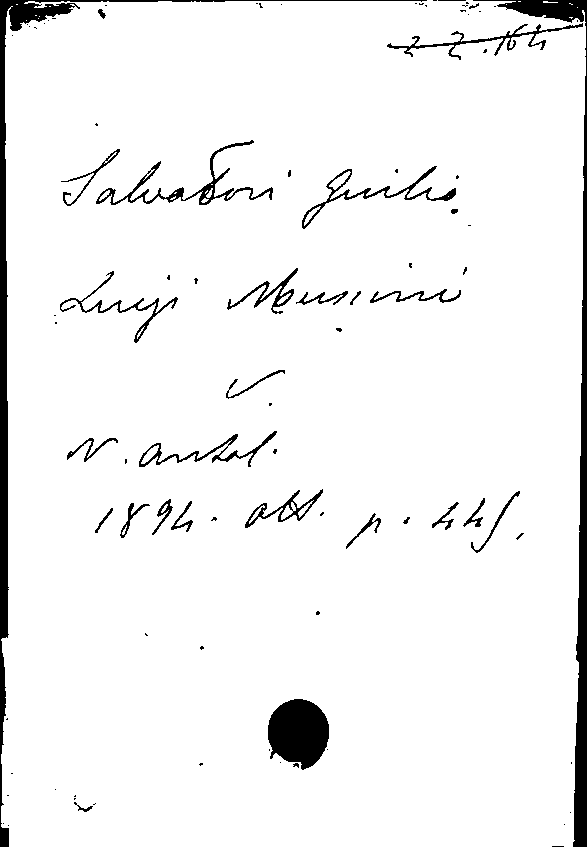 2 2.164
Salvatori Giulio
Luigi Mussini
V.
N. antol.
1894. ott. p. 445.